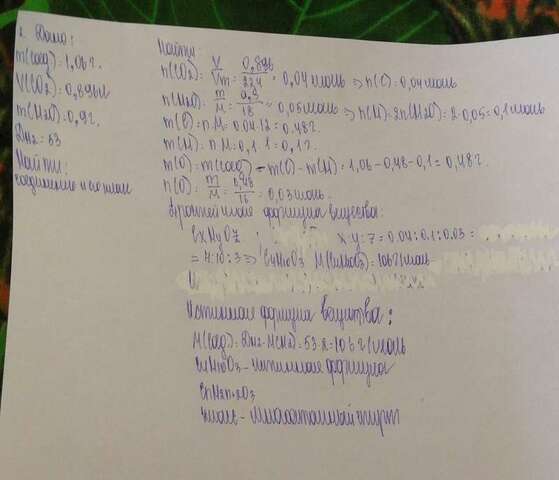 2. Дано:
m(соед)=1,06 г.
V(CO2)=0,896л
m(H2O)=0,9г.
DH2=53
Найти:
соединение и его класс
Найти:
n(CO2)= V/Vm = 0,896/22,4 = 0,04 моль => n(C)=0,04моль
n(H2O)= m/M = 0,9/18 = 0,05моль => n(H)=2n(H2O)=2·0,05=0,1моль
m(C)=n·M=0.04·12=0.48г.
m(H)=n·M=0,1·1=0,1г.
m(O)=m(соед)-m(C)-m(H)=1,06-0,48-0,1=0,48г.
n(O)= m/M = 0,48/16 = 0,03моль.
Простейшая формула вещества:
CxHyOz x:y:z=0.04:0.1:0.03=
=4:10:3=>C4H10O3 M(C4H10O3)=106г/моль
Истинная формула вещества:
M(соед)=DH2·M(H2)=53·2=106г/моль
C4H10O3-истинная формула
CnH2n+2O3
класс-многоатомный спирт